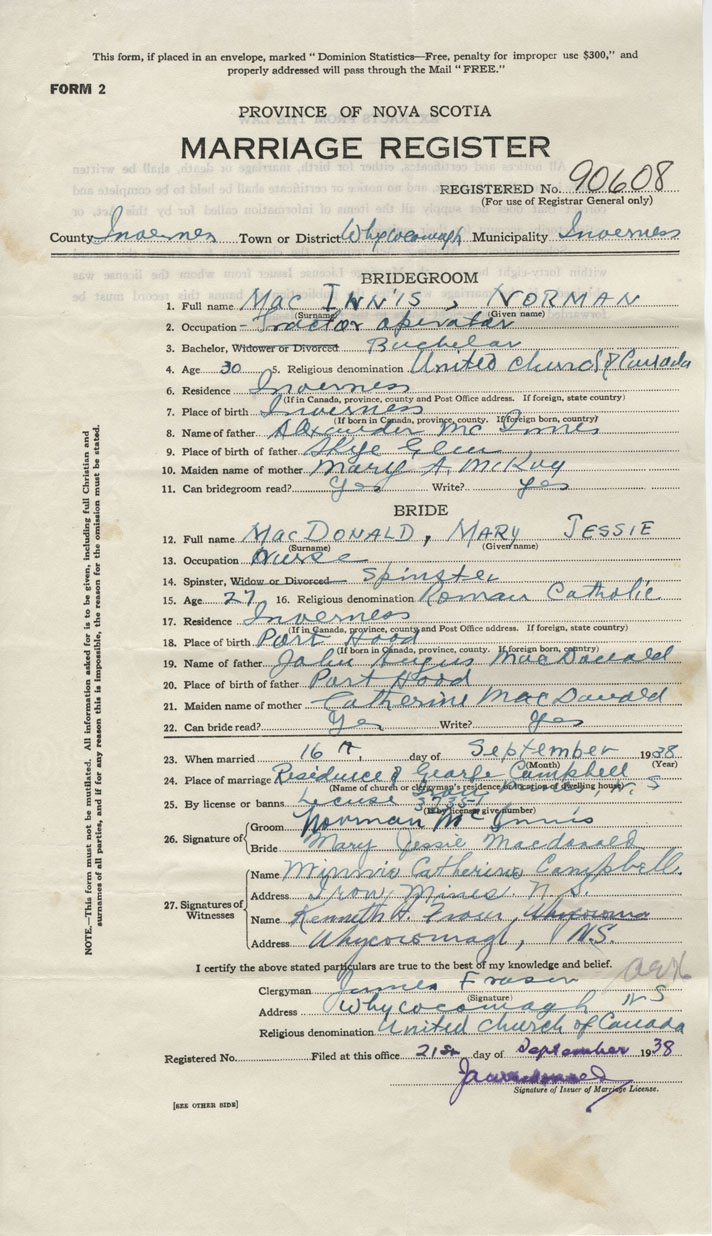 This form, if placed in an envelope, marked "Dominion Statistics—Free, penalty for improper use $300," and
properly addressed will pass through the Mail "FREE."
FORM 2
PROVINCE OF NOVA SCOTIA
MARRIAGE REGISTER
REGISTERED No. 90608
(For use of Registrar General only)
County Inverness Town or District Whycocomagh Municipality Inverness
BRIDEGROOM
1. Full name MacINNIS, NORMAN
(Surname) (Given name)
2. Occupation - Tractor operator
3. Bachelor, Widower or Divorced Bachelor
4. Age 30 5. Religious denomination United Church of Canada
6. Residence Inverness
(If in Canada, province, county and Post Office address. If foreign, state country)
7. Place of birth Inverness
(If born in Canada, province, county. If foreign born, country)
8. Name of father Alexander McInnes
9. Place of birth of father Skye Glen
10. Maiden name of mother Mary A. McKay
11. Can bridegroom read? Yes Write? Yes
BRIDE
12. Full name MacDONALD, MARY JESSIE
(Surname) (Given name)
13. Occupation Nurse
14. Spinster, Widow or Divorced Spinster
15. Age 27 16. Religious denomination Roman Catholic
17. Residence Inverness
(If in Canada, province, county and Post Office address. If foreign, state country)
18. Place of birth Port Hood
(If born in Canada, province, county. If foreign born, country)
19. Name of father John Angus MacDonald
20. Place of birth of father Port Hood
21. Maiden name of mother Catherine MacDonald
22. Can bride read? Yes Write? Yes
23. When married 16th day of September 1938
(Month) (Year)
24. Place of marriage Residence of George Campbell
(Name of church or clergyman's residence or location of dwelling house)
Iron Mines, N.S
25. By license or banns License
(If by license give number)
26. Signature of
Groom Norman McInnis
Bride Mary Jessie Macdonald
27. Signatures of Witnesses
Name Minnie Catherine Campbell.
Address Iron Mines. N.S.
Name Kenneth A. Fraser,
Address Whycocomagh, N.S.
I certify the above stated particulars are true to the best of my knowledge and belief.
Clergyman James Fraser
(Signature)
Address Whycocomagh N S
Religious denomination United Church of Canada
Registered No. Filed at this office 21st day of September 1938
Signature of Issuer of Marriage License.
[SEE OTHER SIDE]
NOTE.—This form must not be mutilated. All information asked for is to be given, including full Christian and
surnames of all parties, and if for any reason this is impossible, the reason for the omission must be stated.